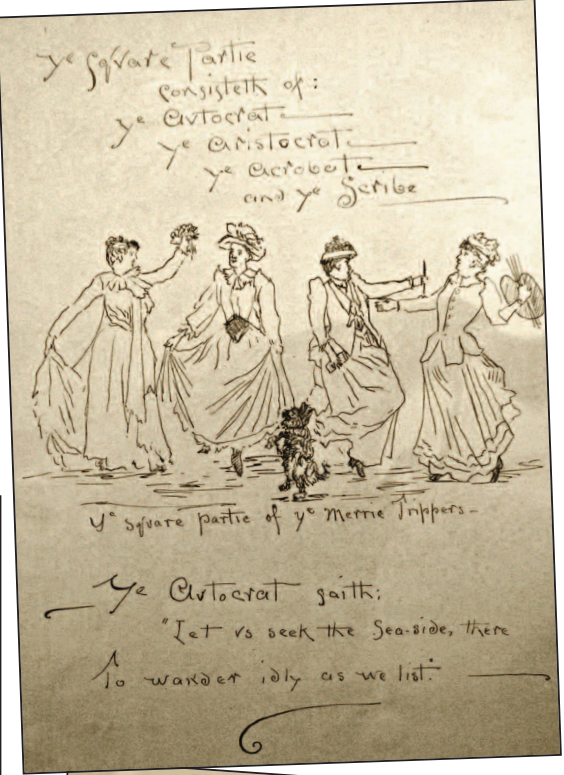 ye Sqvare Partie
consisteth of:
ye Avtocrat
ye Aristocrat
ye Acrobat
and ye Scribe
Ye square partie of ye Merrie Trippers-
Ye Avtocrat saith:
"Let vs seek the Sea-side, there
To wander idly as we list:"